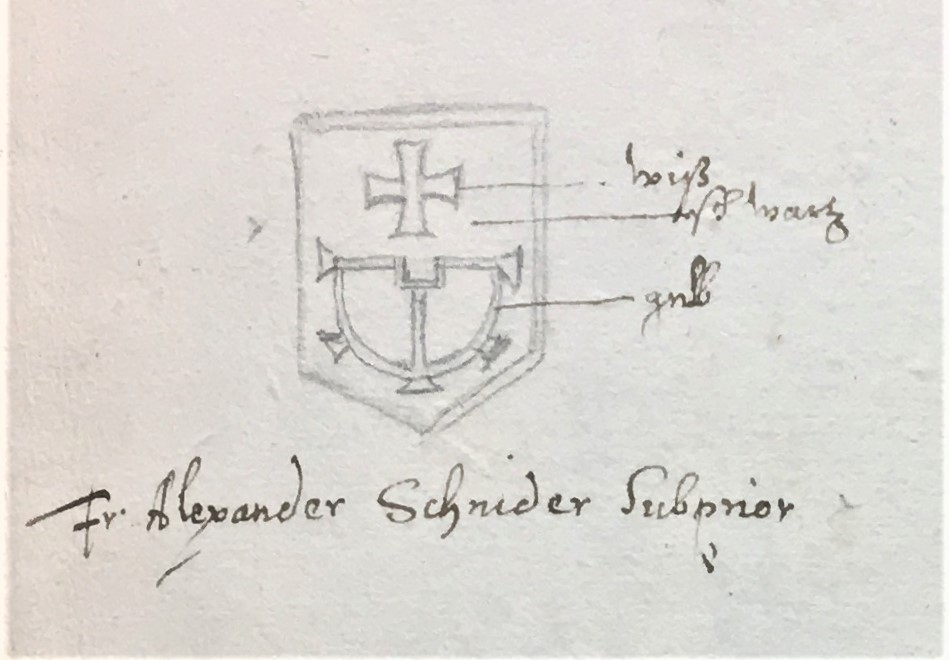 wiß
schwartz
gelb
Fr. Alexander Schnider Subprior